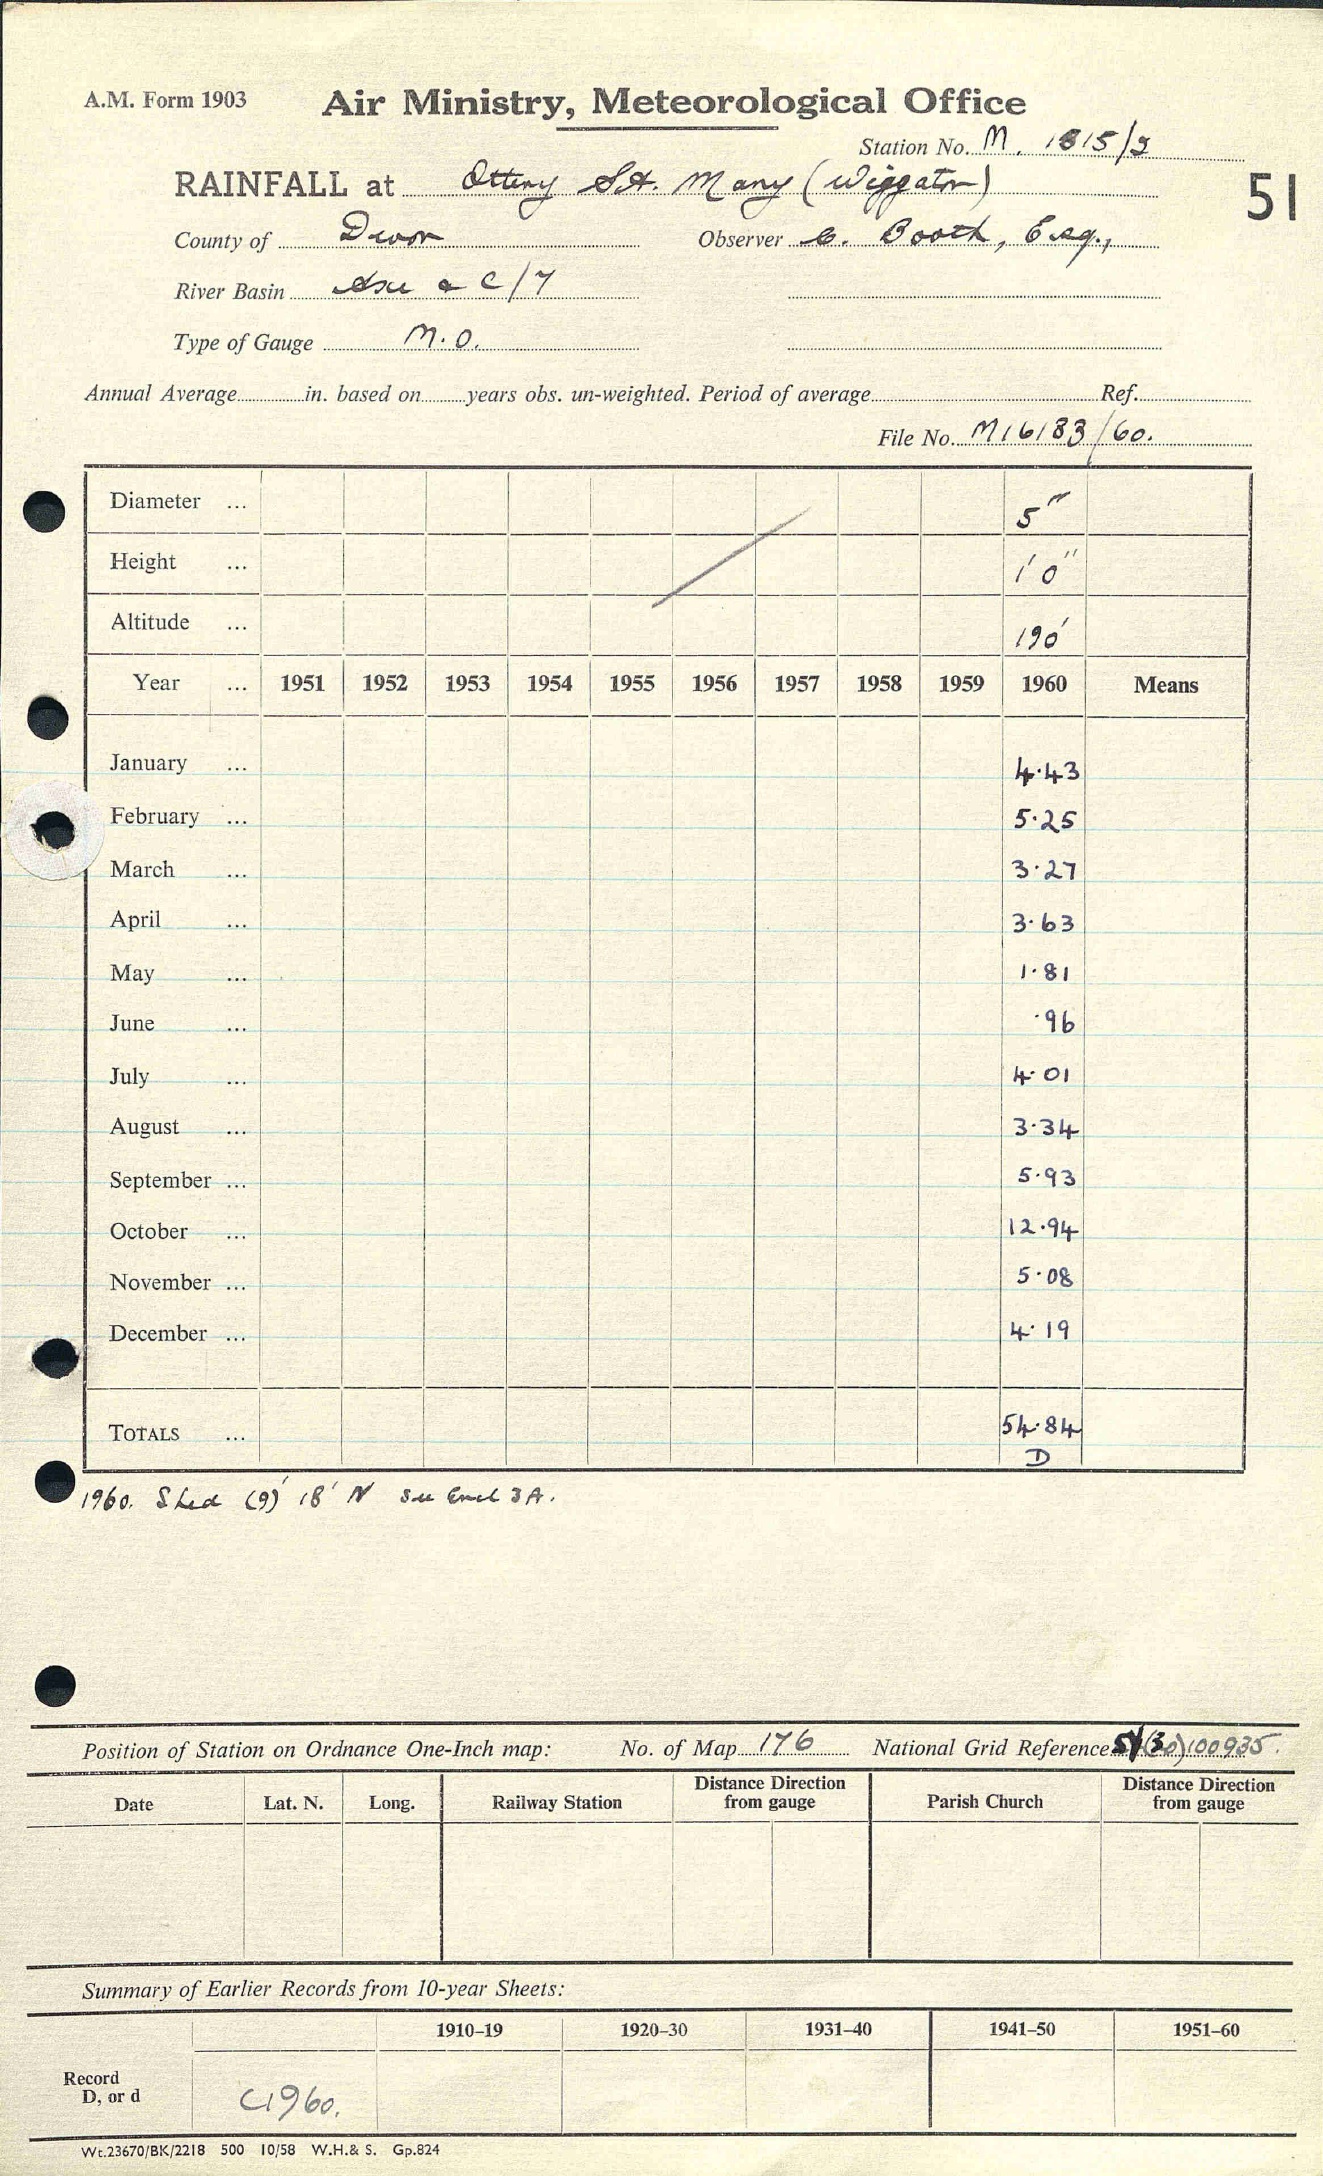 A.M. Form 1903
Air Ministry, Meteorological Office
Station No. M. 1815/2
RAINFALL at Ottery St. Mary (Wiggaton)
51
County of Devon Observer C. Booth, Esq.,
River Basin Axe & C/7
Type of Gauge M.O.
Annual Average in. based on years obs. un-weighted. Period of average Ref.
File No. M16183/60.
Diameter ... 5"
Height ... 1'0"
Altitude ... 190'
Year ... 1951 1952 1953 1954 1955 1956 1957 1958 1959 1960 Means
January ... 4.43
February ... 5.25
March ... 3.27
April ... 3.63
May ... 1.81
June ... .96
July ... 4.01
August ... 3.34
September ... 5.93
October ... 12.94
November ... 5.08
December ... 4.19
TOTALS ... 54.84
D
1960. Shed (9)' 18' N See Encl 3A.
Position of Station on Ordnance One-Inch map: No. of Map 176 National Grid Reference 100935.
Date Lat. N. Long. Railway Station Distance Direction from gauge Parish Church Distance Direction from gauge
Summary of Earlier Records from 10-year Sheets:
1910–19 1920–30 1931–40 1941–50 1951–60
Record
D, or d C1960.
Wt.23670/BK/2218 500 10/58 W.H.& S. Gp.824